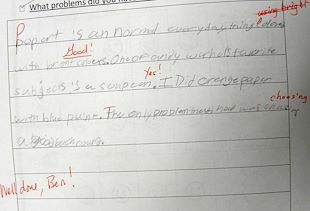 What problems did you have
using bright
Pop art is an normal everyday thing colors
Good!
with bright colors. One of andy warhol's favorite
Yes!
subjects is a soup can. I Did orenge paper
choosing
with blue paint. The only problem I had was
a background.
Well done, Ben!